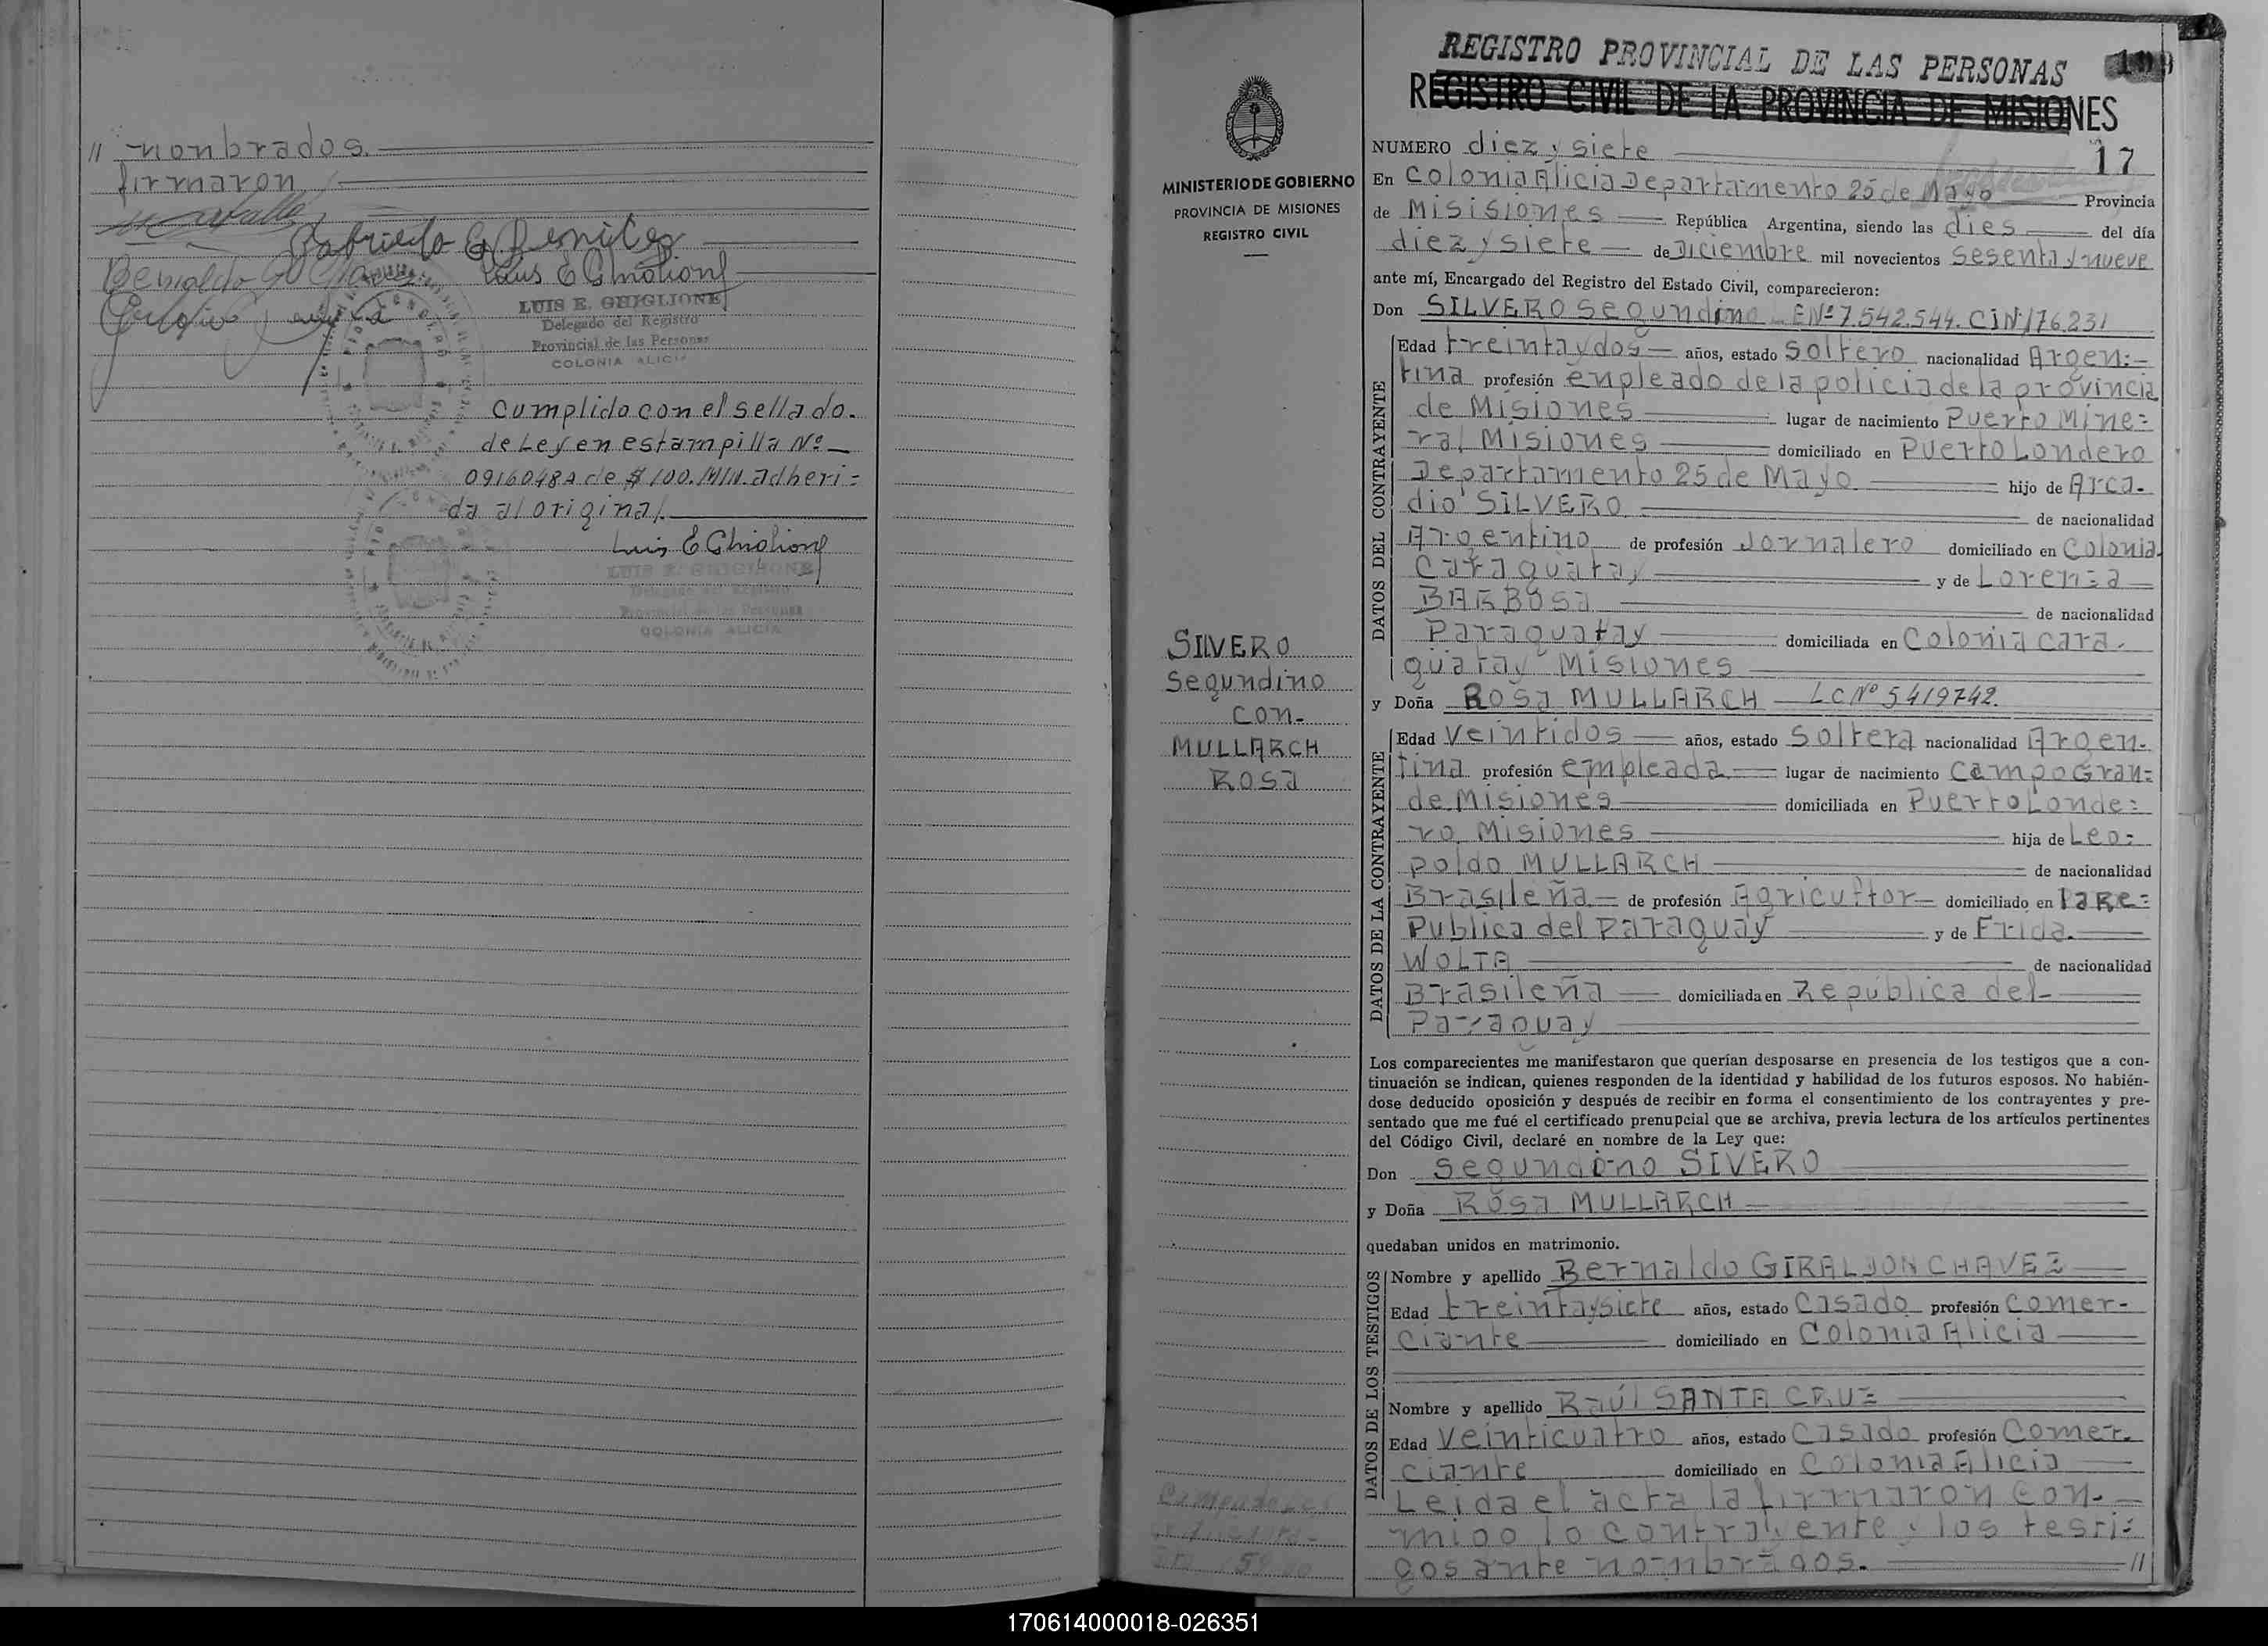 // nonbrados.
firmaron
Gabriela G Benitez
Luis E Ghiglione
LUIS E. GHIGLIONE
Delegado del Registro
Provincial de las Personas
COLONIA ALICIA
Cumplido con el sellado.
de Ley en estampilla Nº
de $ 100. M/N. adheri=
da al original.
Luis E Ghiglione
LUIS E. GHIGLIONE
Delegado del Registro
Provincial de las Personas
COLONIA ALICIA
MINISTERIO DE GOBIERNO
PROVINCIA DE MISIONES
REGISTRO CIVIL
SILVERO
Segundino
con-
MULLARCH
Rosa
REGISTRO PROVINCIAL DE LAS PERSONAS
REGISTRO CIVIL DE LA PROVINCIA DE MISIONES
NUMERO diez y siete 17
En Colonia Alicia Departamento 25 de Mayo Provincia
de Misisiones República Argentina, siendo las dies del día
diez y siete de Diciembre mil novecientos sesenta y nueve
ante mí, Encargado del Registro del Estado Civil, comparecieron:
Don SILVERO Segundino ENº 7.542.544. CiNº 176.231
DATOS DEL CONTRAYENTE
Edad treinta y dos años, estado Soltero nacionalidad Argen:-
tina profesión enpleado de la policia de la provincia
de Misiones lugar de nacimiento Puerto Mine=
ral Misiones domiciliado en Puerto Londero
Departamento 25 de Mayo hijo de Arca-
dio SILVERO de nacionalidad
Argentino de profesión Jornalero domiciliado en Colonia
Caraguatay y de Lorenza
BARBOSA de nacionalidad
Paraguatay domiciliada en Colonia Cara-
guatay Misiones
y Doña Rosa MULLARCH LC Nº 5419742.
DATOS DE LA CONTRAYENTE
Edad Veintidos años, estado Soltera nacionalidad Argen-
tina profesión empleada lugar de nacimiento Campo Gran=
de Misiones domiciliada en Puerto Londe=
ro Misiones hija de Leo=
poldo MULLARCH de nacionalidad
Brasileña de profesión Agricultor domiciliado en la Re=
Publica del Paraguay y de Frida
WOLTA de nacionalidad
Brasileña domiciliada en Republica del
Paraguay
Los comparecientes me manifestaron que querían desposarse en presencia de los testigos que a con-
tinuación se indican, quienes responden de la identidad y habilidad de los futuros esposos. No habién-
dose deducido oposición y después de recibir en forma el consentimiento de los contrayentes y pre-
sentado que me fué el certificado prenupcial que se archiva, previa lectura de los artículos pertinentes
del Código Civil, declaré en nombre de la Ley que:
Don Segundino SIVERO
y Doña Rosa MULLARCH
quedaban unidos en matrimonio.
DATOS DE LOS TESTIGOS
Nombre y apellido Bernaldo GIRALDON CHAVEZ
Edad treinta y siete años, estado Casado profesión Comer-
ciante domiciliado en Colonia Alicia
Nombre y apellido Raúl SANTA CRUZ
Edad Veinticuatro años, estado Casado profesión Comer-
ciante domiciliado en Colonia Alicia
Leida el acta la firmaron con-
migo lo contrayente y los testi=
gos ante nombrados. //
170614000018-026351